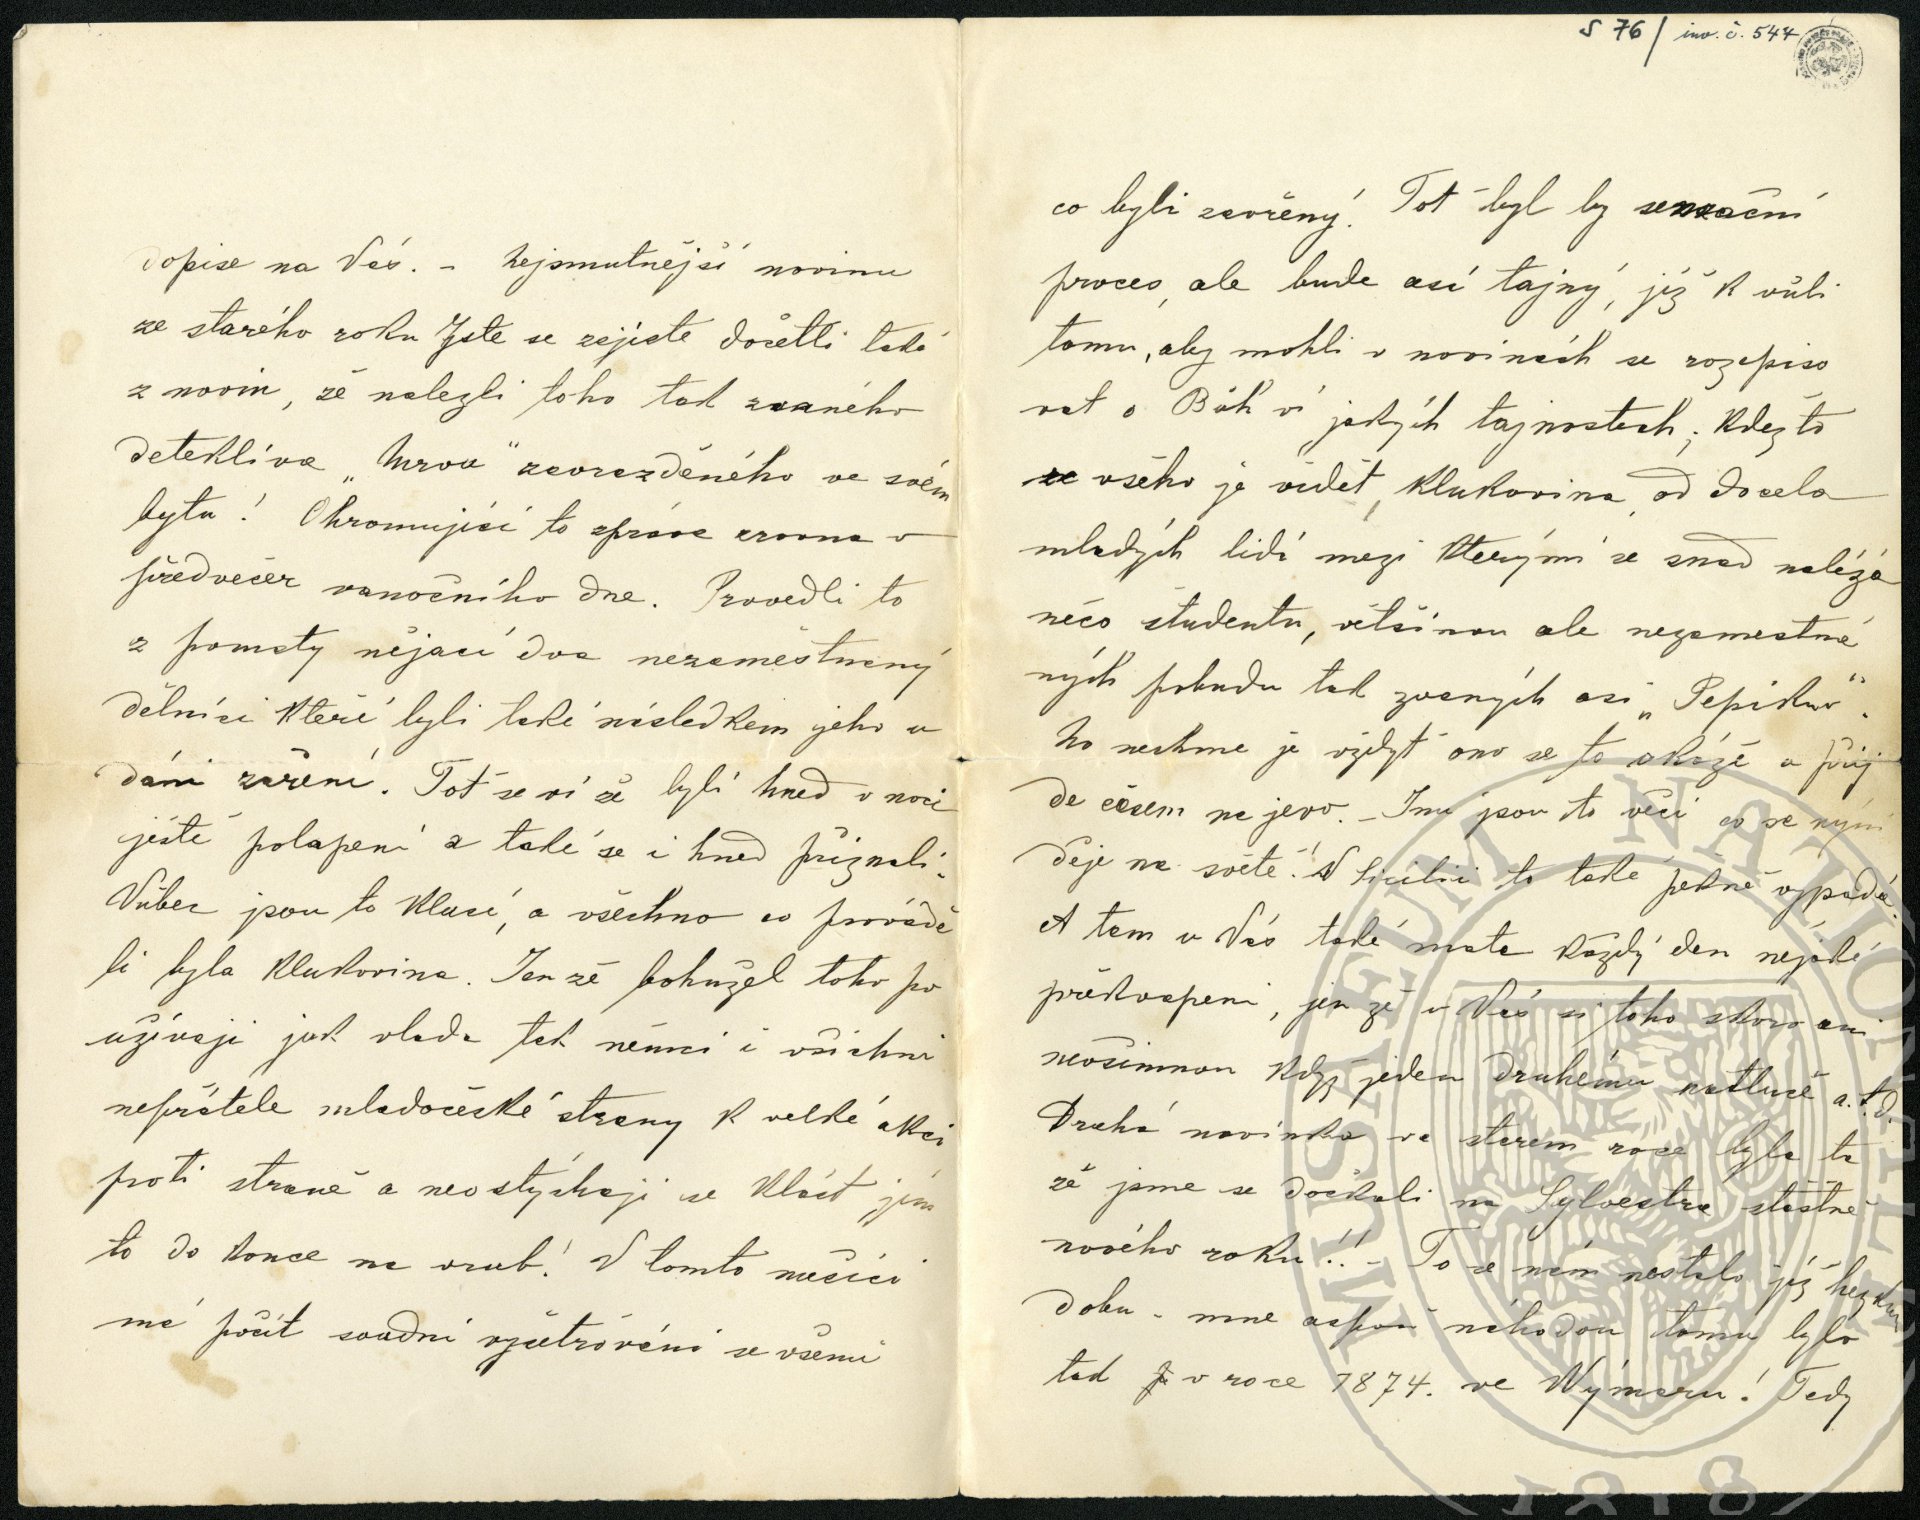 S 76 / inv. č. 544
dopise na Vás. – Nejsmutnější novinu
ze starého roku Jste se zajiste dočetli také
z novin, že nalezli toho tak zvaného
detektiva „Mrvu" zavražděného ve svém
bytu! Ohromující to zpráva zrovna v
předvečer vanočního dne. Provedli to
z pomsty nějací dva nezaměstnaný
dělníci kteří byli také následkem jeho u
dání zařeni. Toť se ví že byli hned v noci
ještě polapeni a také se i hned přiznali.
Vůbec jsou to kluci, a všechno co prováde
li byla klukovina. Jen že bohužel toho po
užívaji jak vlada tak němci i všichni
nepřátele mladočeské strany k velké akci
proti straně a neostýchaji se klást jim
to do konce na vrub! V tomto měsíci
má počít soudní vyšetrováni se všemi
co byli zavřený! Toť byl by sensační
proces, ale bude asi tajný, již k vůli
tomu, aby mohli v novinách se rozepiso
vat o Bůh ví jakých tajnostech; kdežto
ze všeho je vidět, klukovina od docela
mladých lidí mezi kterými se snad naléza
něco študentu, většinou ale nezamestna
ných pobudu tak zvaných asi „Pepiku".
No nechme je vždyť ono se to ukáže a přij
de časem na jevo. – Inu jsou to věci co se nyni
děje na světě! V Sicilii to také pekně vypadá.
A tam u Vás také mate každý den nějaké
překvapeni, jen že u Vás si toho skoro ani
nevšimnou když jeden druhému natluče a.t.d.
Druhá novinka ve starem roce byla ta
že jsme se dočkali na Sylvestra štástně
nového roku!! – To se nám nestalo již hezkou
dobu – mne aspoň náhodou tomu bylo
tak v roce 1874. ve Výmaru! Tedy
MUSAEUM NATIONALE
1818